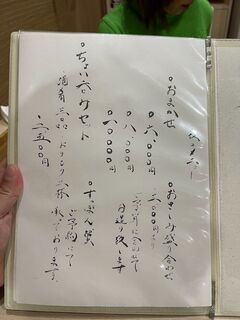 おまかせ
六、〇〇〇円
八、〇〇〇円
一〇、〇〇〇円
おさしみ盛り合わせ
二、〇〇〇円より
ご予算に合わせて
お造り致します
ちょい呑みセット
酒肴三品 ドリンク二杯
二、五〇〇円
すっぽん鍋
ご予約にて
承っております。